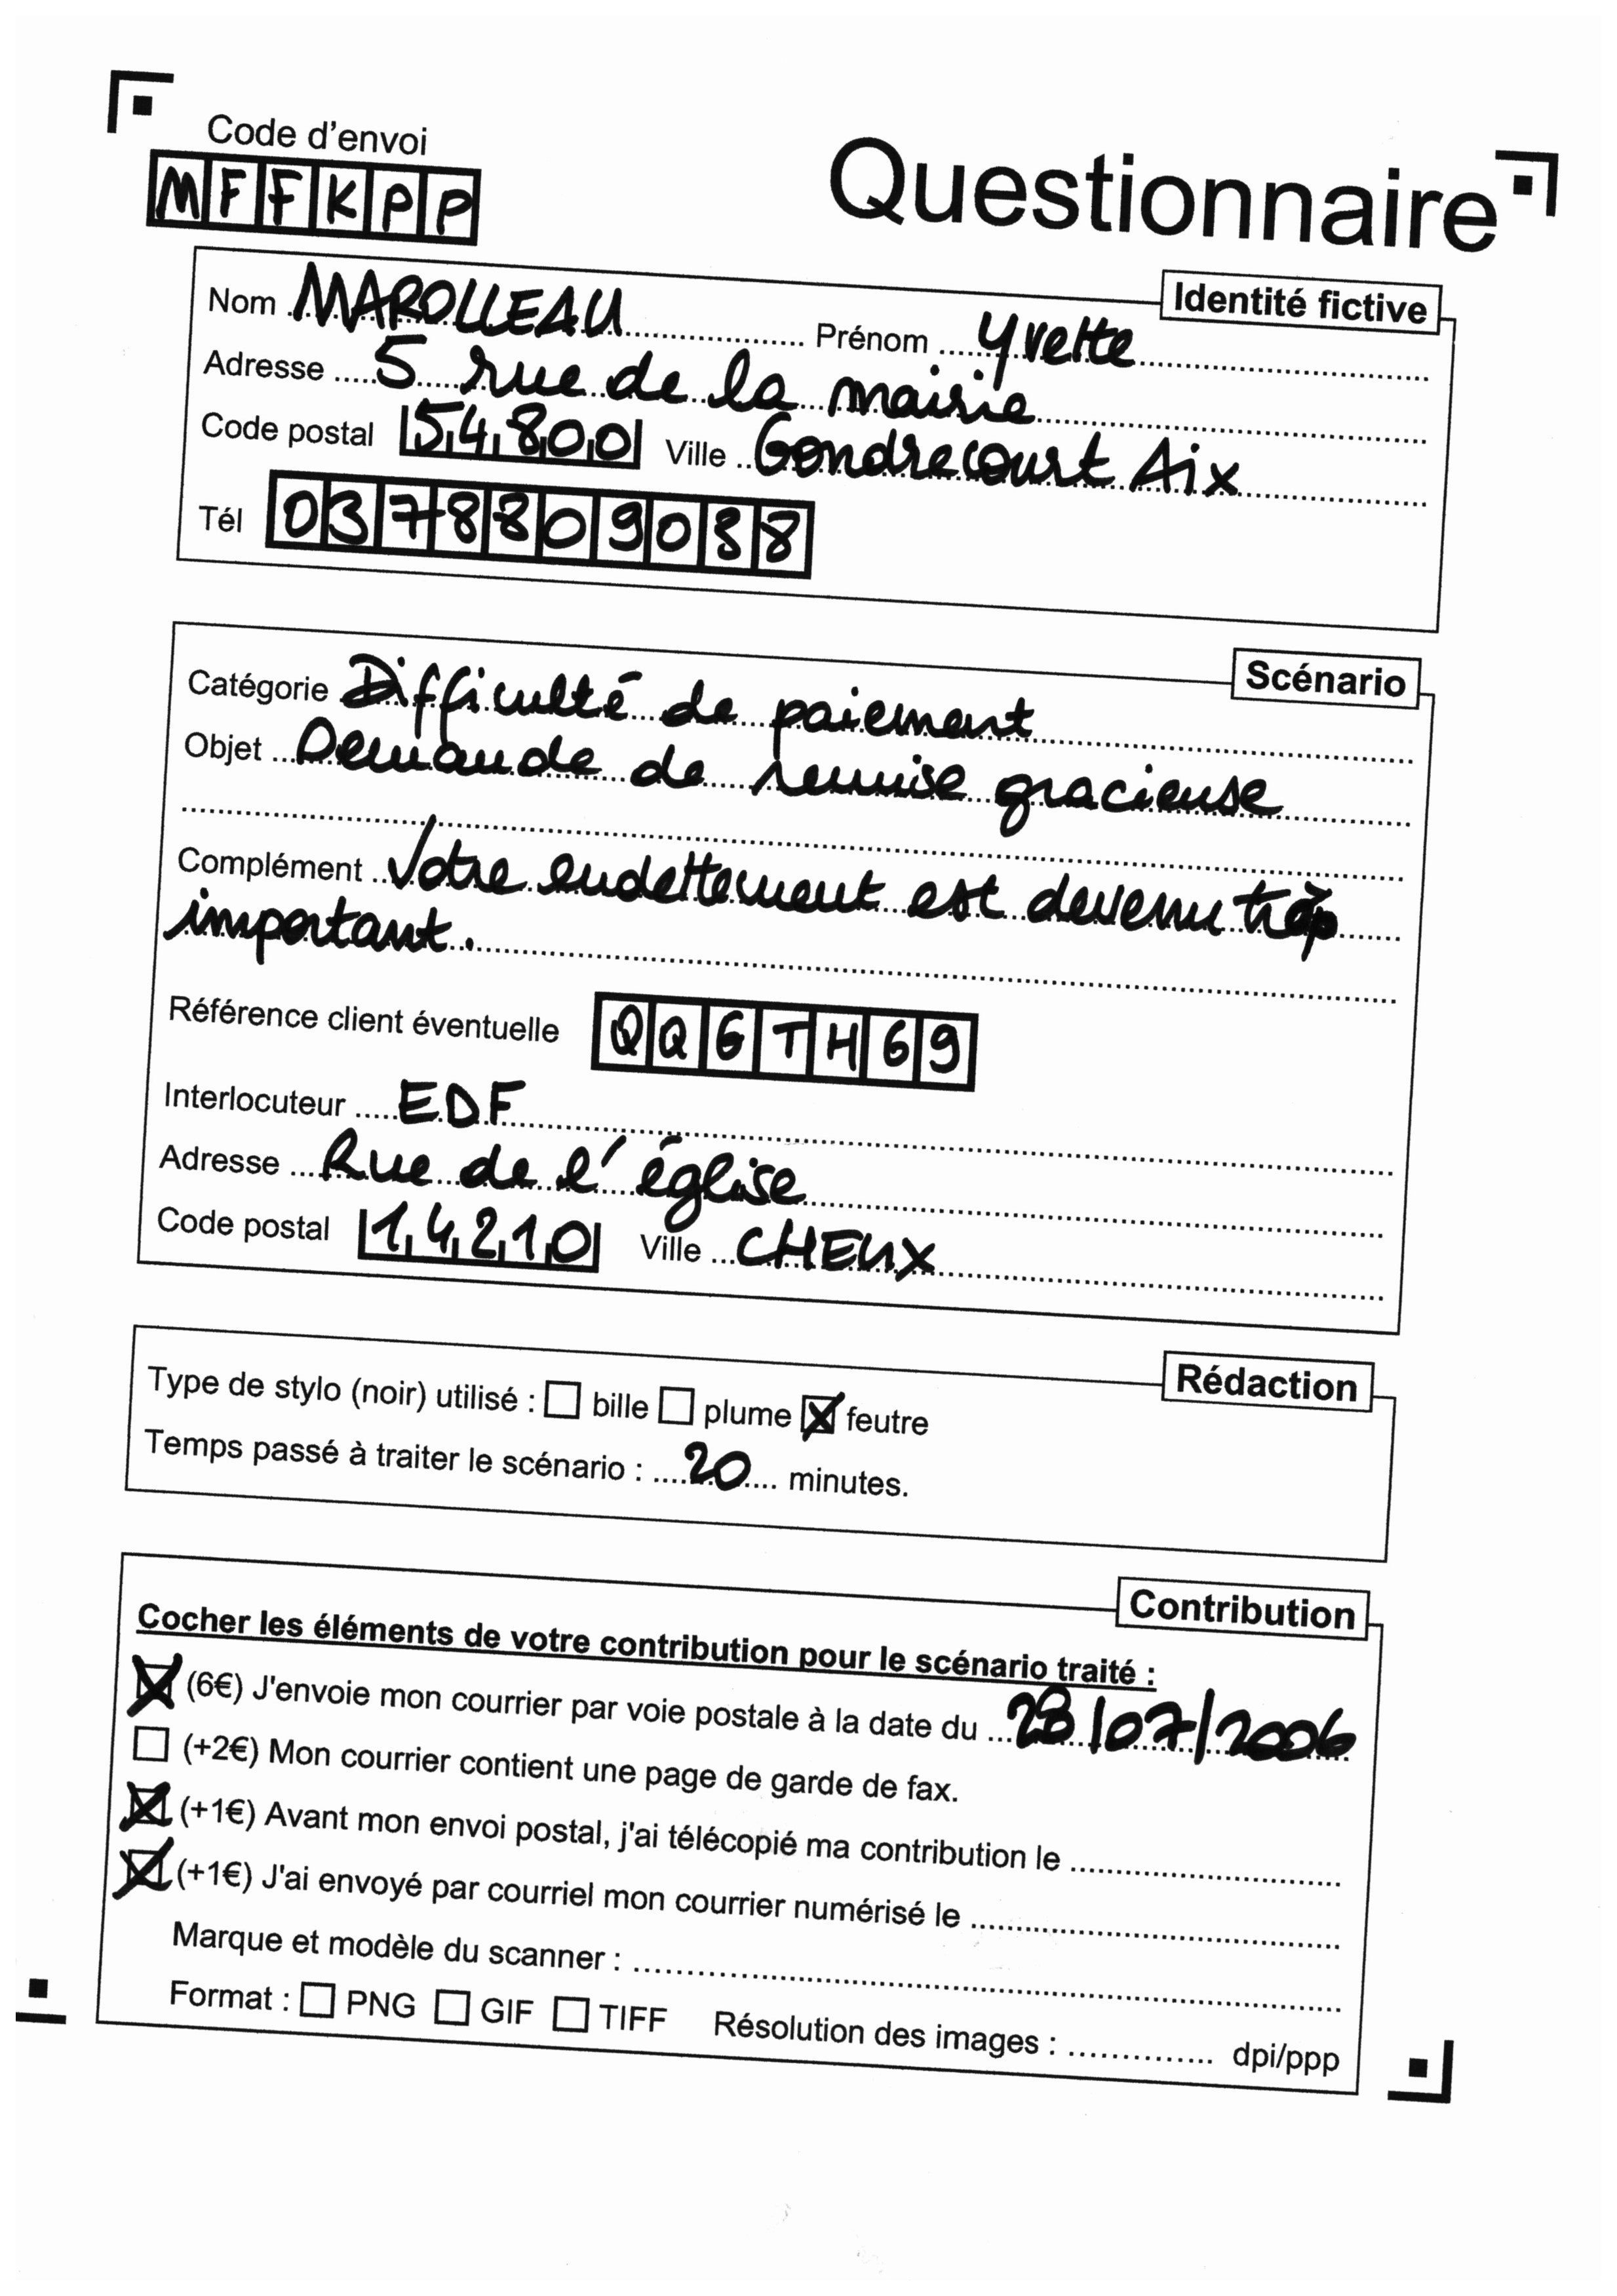 Code d'envoi
MFFKPP
Questionnaire
Identité fictive
Nom MAROLLEAU Prénom Yvette
Adresse 5 rue de la mairie
Code postal 54800 Ville Gondrecourt Aix
Tél 0378809088
Scénario
Catégorie Difficulté de paiement
Objet Demande de remise gracieuse
Complément Votre endettement est devenu trop
important.
Référence client éventuelle QQGTH69
Interlocuteur EDF
Adresse Rue de l'église
Code postal 14210 Ville CHEUX
Rédaction
Type de stylo (noir) utilisé : ☐ bille ☐ plume ☒ feutre
Temps passé à traiter le scénario : 20 minutes.
Contribution
Cocher les éléments de votre contribution pour le scénario traité :
☒ (6€) J'envoie mon courrier par voie postale à la date du 28/07/2006
☐ (+2€) Mon courrier contient une page de garde de fax.
☒ (+1€) Avant mon envoi postal, j'ai télécopié ma contribution le
☒ (+1€) J'ai envoyé par courriel mon courrier numérisé le
Marque et modèle du scanner :
Format : ☐ PNG ☐ GIF ☐ TIFF Résolution des images : dpi/ppp